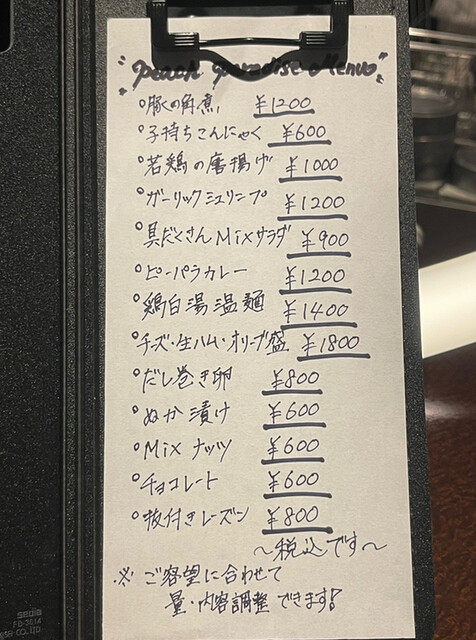 "Peach Paradise Menu"
○豚の角煮 ¥1200
○子持ちこんにゃく ¥600
○若鶏の唐揚げ ¥1000
○ガーリックシュリンプ ¥1200
○具だくさんMixサラダ ¥900
○ピーパラカレー ¥1200
○鶏白湯温麺 ¥1400
○チーズ・生ハム・オリーブ盛 ¥1800
○だし巻き卵 ¥800
○ぬか漬け ¥600
○Mixナッツ ¥600
○チョコレート ¥600
○枝付きレーズン ¥800
〜税込です〜
※ご容望に合わせて
量・内容調整できます!
sedia